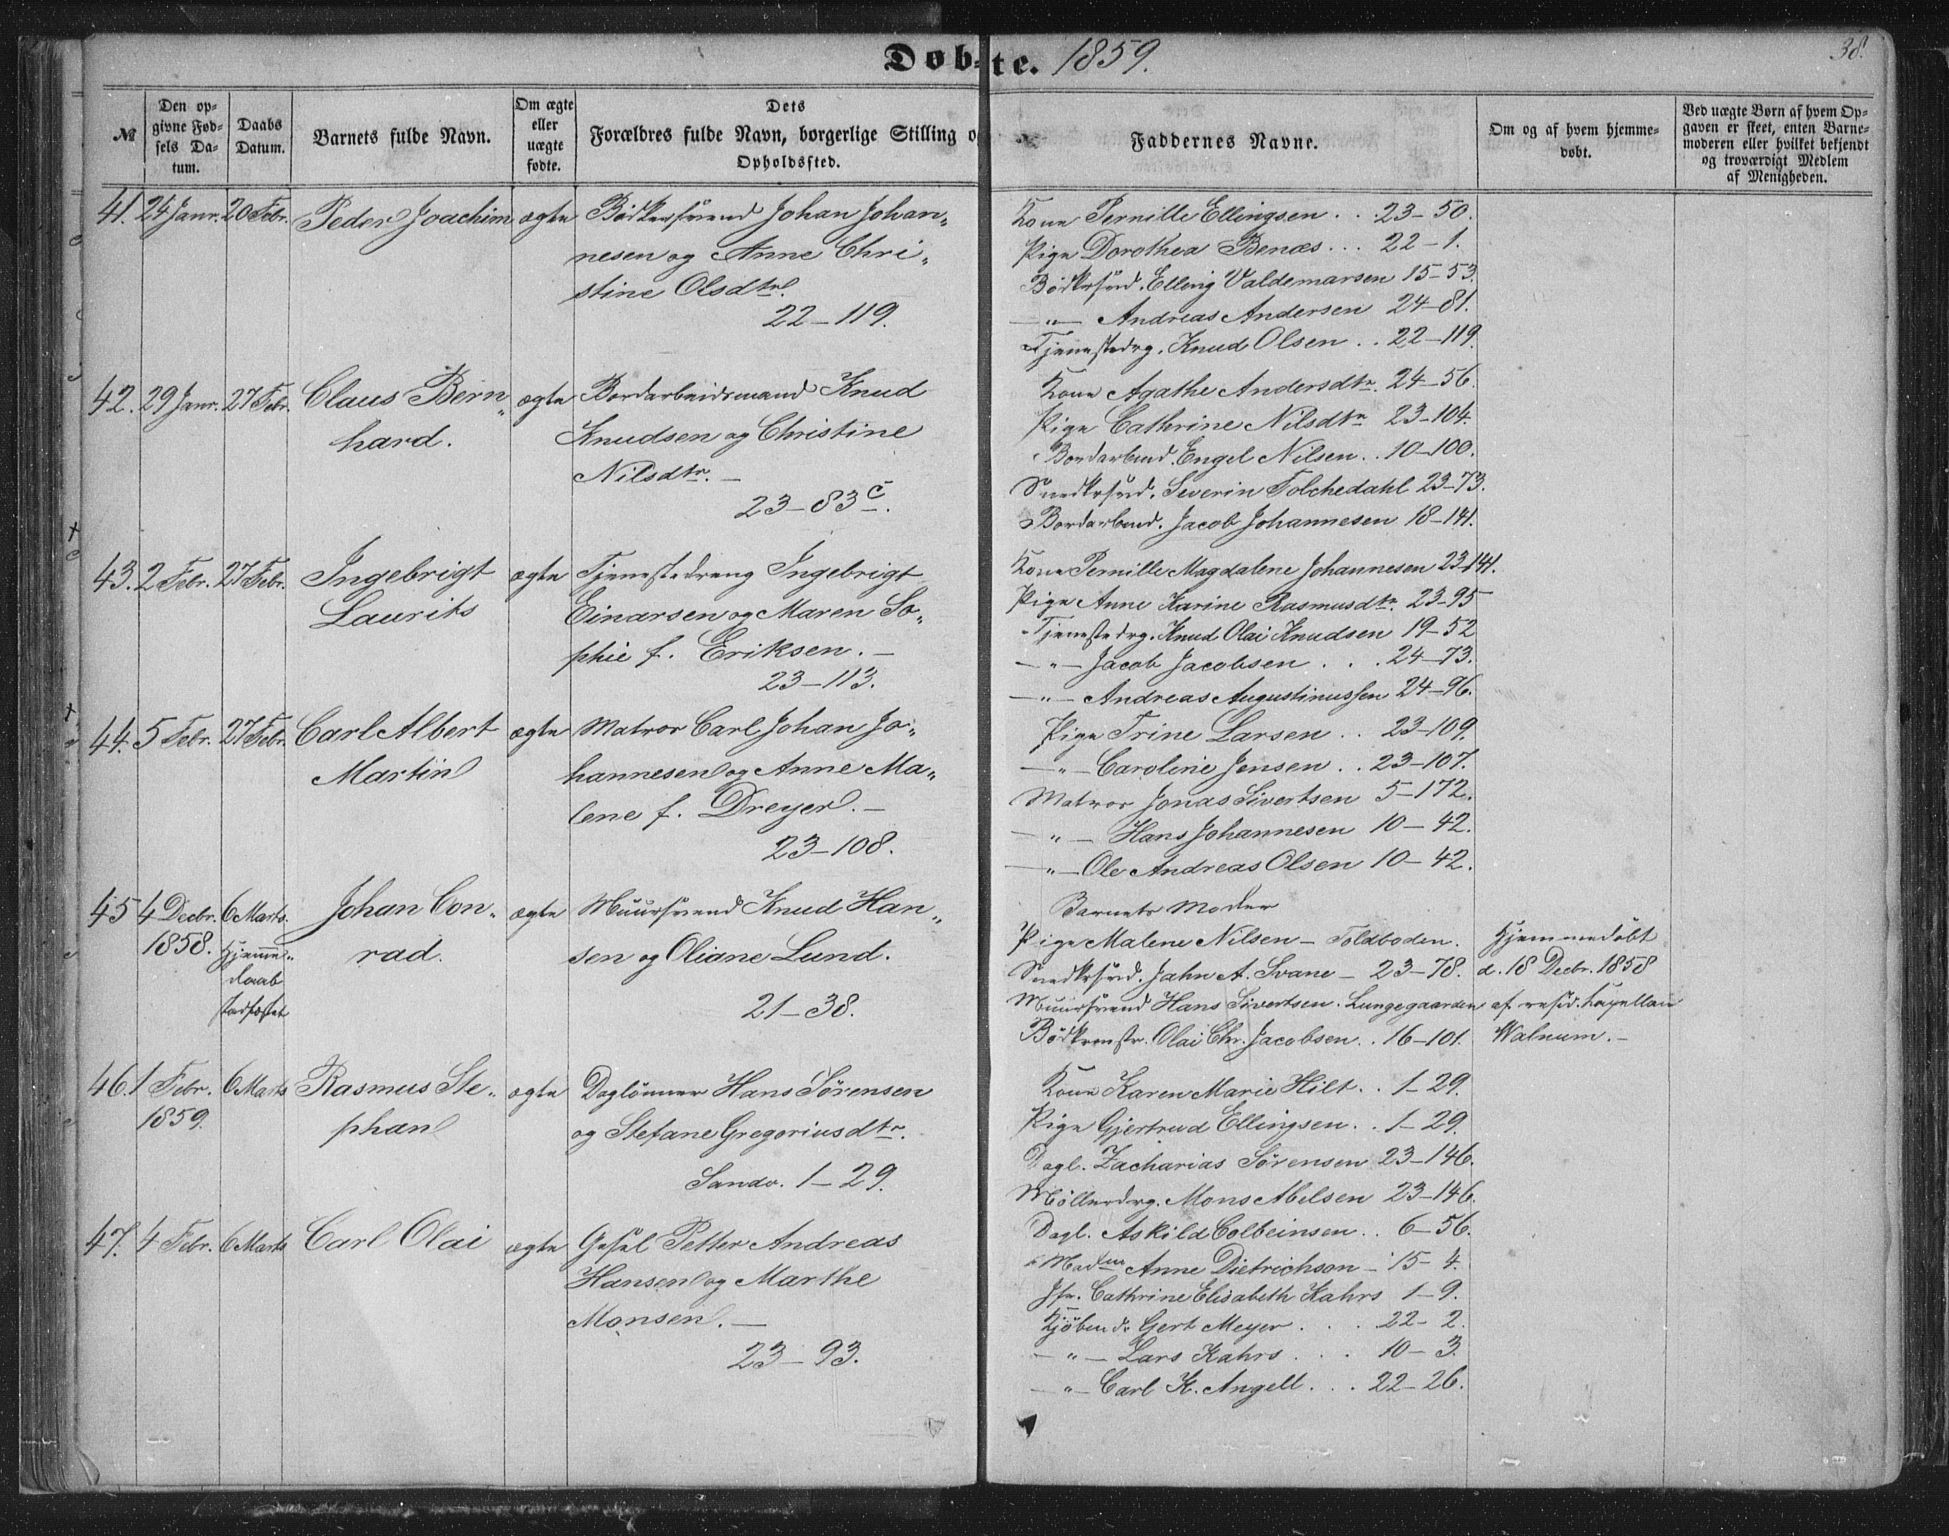 Døb-te. 1859.
38.
№
Den op-
givne Fød-
sels Da-
tum.
Daabs
Datum.
Barnets fulde Navn.
Om ægte
eller
uægte
fødte.
Dets
Forældres fulde Navn, borgerlige Stilling o
Opholdssted.
Faddernes Navne.
Om og af hvem hjemme-
døbt.
Ved uægte Børn af hvem Op-
gaven er skeet, enten Barne-
moderen eller hvilket bekjendt
og troværdigt Medlem
af Menigheden.
41. 24 Janr. 20 Febr. Peder Joachim ægte Bødkersvend Johan Johan-
nesen og Anne Chri-
stine Olsdtr.
22-119.
Kone Pernille Ellingsen . . 23-50.
Pige Dorothea Benæs . . . 22-1.
Bødkersvd. Elling Valdemarsen 15-53.
-"- Andreas Andersen 24-81.
Tjenestedrg. Knud Olsen . . 22-119.
42. 29 Janr. 27 Febr. Claus Bern- ægte Bordarbeidsmand Knud
hard. Knudsen og Christine
Nilsdtr. -
23-83c.
Kone Agathe Andersdtr. 24-56.
Pige Cathrine Nilsdtr 23-104.
Bordarbmd. Engel Nilsen . . 10-100.
Snedkrsvd. Severin Folchedahl 23-73.
Bordarbmd. Jacob Johannesen 18-141.
43. 2 Febr. 27 Febr. Ingebrigt ægte Tjenestedreng Ingebrigt
Laurits Einarsen og Maren So-
phie f. Eriksen. -
23-113.
Kone Pernille Magdalene Johannesen 23-141.
Pige Anne Karine Rasmusdtr. 23-95
Tjenestedrg. Knud Olai Knudsen 19-52
-"- Jacob Jacobsen . . . 24-73.
-"- Andreas Augustinussen 24-96.
44. 5 Febr. 27 Febr. Carl Albert ægte Matros Carl Johan Jo-
Martin hannesen og Anne Ma-
lene f. Dreyer. -
23-108.
Pige Trine Larsen . . 23-109.
-"- Caroline Jensen . . 23-107.
Matros Jonas Sivertsen 5-172.
-"- Hans Johannesen 10-42.
-"- Ole Andreas Olsen 10-42.
45 4 Decbr. 6 Marts. Johan Con- ægte Muursvend Knud Han-
1858. Hjemme- rad. sen og Oliane Lund.
daab
stadfæstet
21-38.
Barnets Moder
Pige Malene Nilsen - Toldboden.
Snedkrsvd. Jahn A. Svane - 23-78.
Muursvend Hans Sivertsen. Lungegaarden
Bødkermstr. Olai Chr. Jacobsen . . 16-101.
Hjemmedøbt
d. 18 Decbr. 1858
af resid. kapellan
Walnum. -
46. 1 Febr. 6 Marts Rasmus Ste- ægte Daglønner Hans Sørensen
1859. phan og Stefane Gregoriusdtr.
Sandv. 1-29.
Kone Karen Marie Hilt . . 1-29.
Pige Gjertrud Ellingsen . . 1-29.
Dagl. Zacharias Sørensen 23-146.
Møllerdrg. Mons Abelsen 23-146.
Dagl. Askild Colbeinsen . . 6-56.
47. 4 Febr. 6 Marts Carl Olai ægte Gesel Petter Andreas
Hansen og Marthe
Monsen. -
23-93.
Madm Anne Dietrichson - 15-4.
Jfr. Cathrine Elisabeth Kahrs 1-9.
Kjøbmd. Gert Meyer . . . 22-2.
-"- Lars Kahrs . . . 10-3.
-"- Carl K. Angell . . . 22-26.